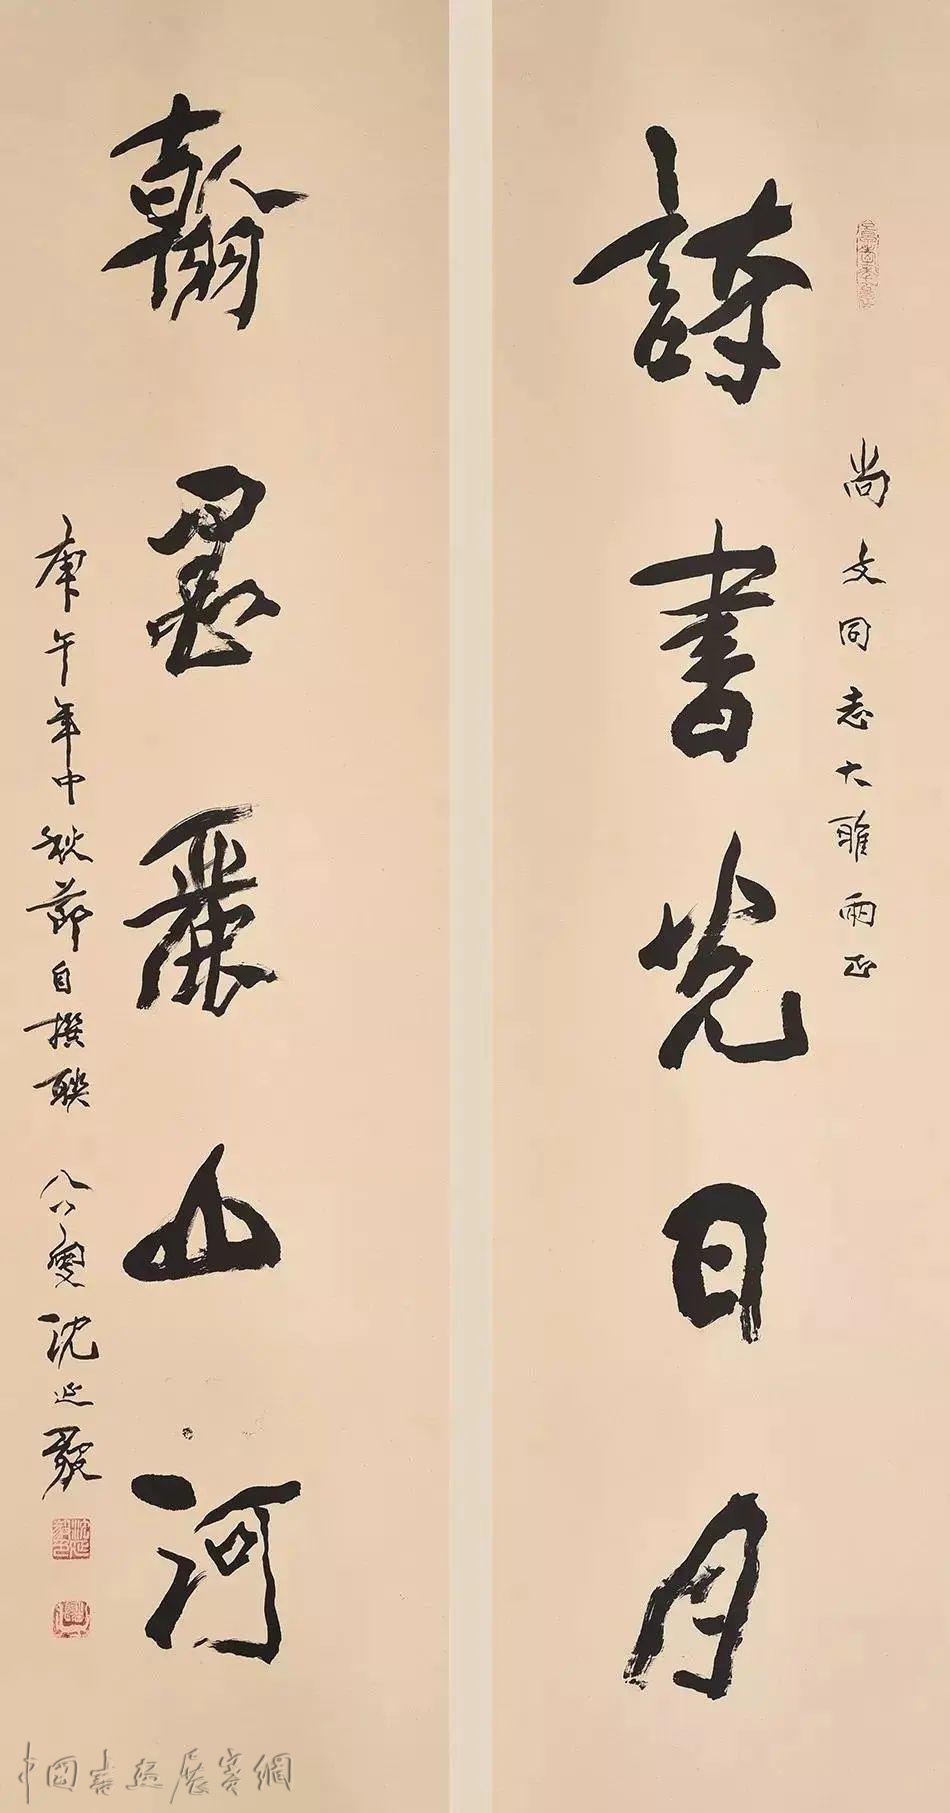 尚文同志大雅両正
詩書光日月
翰墨麗山河
庚午年中秋節自撰聯 八六叟沈延毅
中国書画展賽網